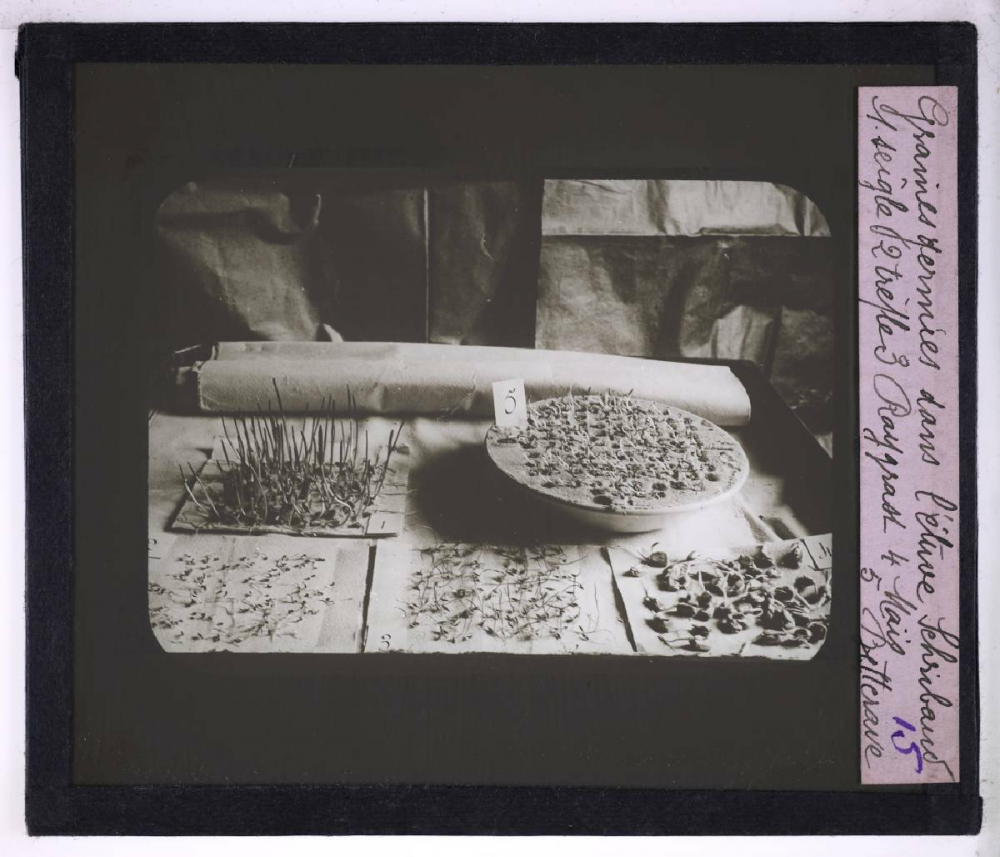 Graines germées dans l'étuve Schribaud
1. seigle 2 trèfle 3 Raygrass 4 Maïs
5 Betterave
15
5
1
3
4